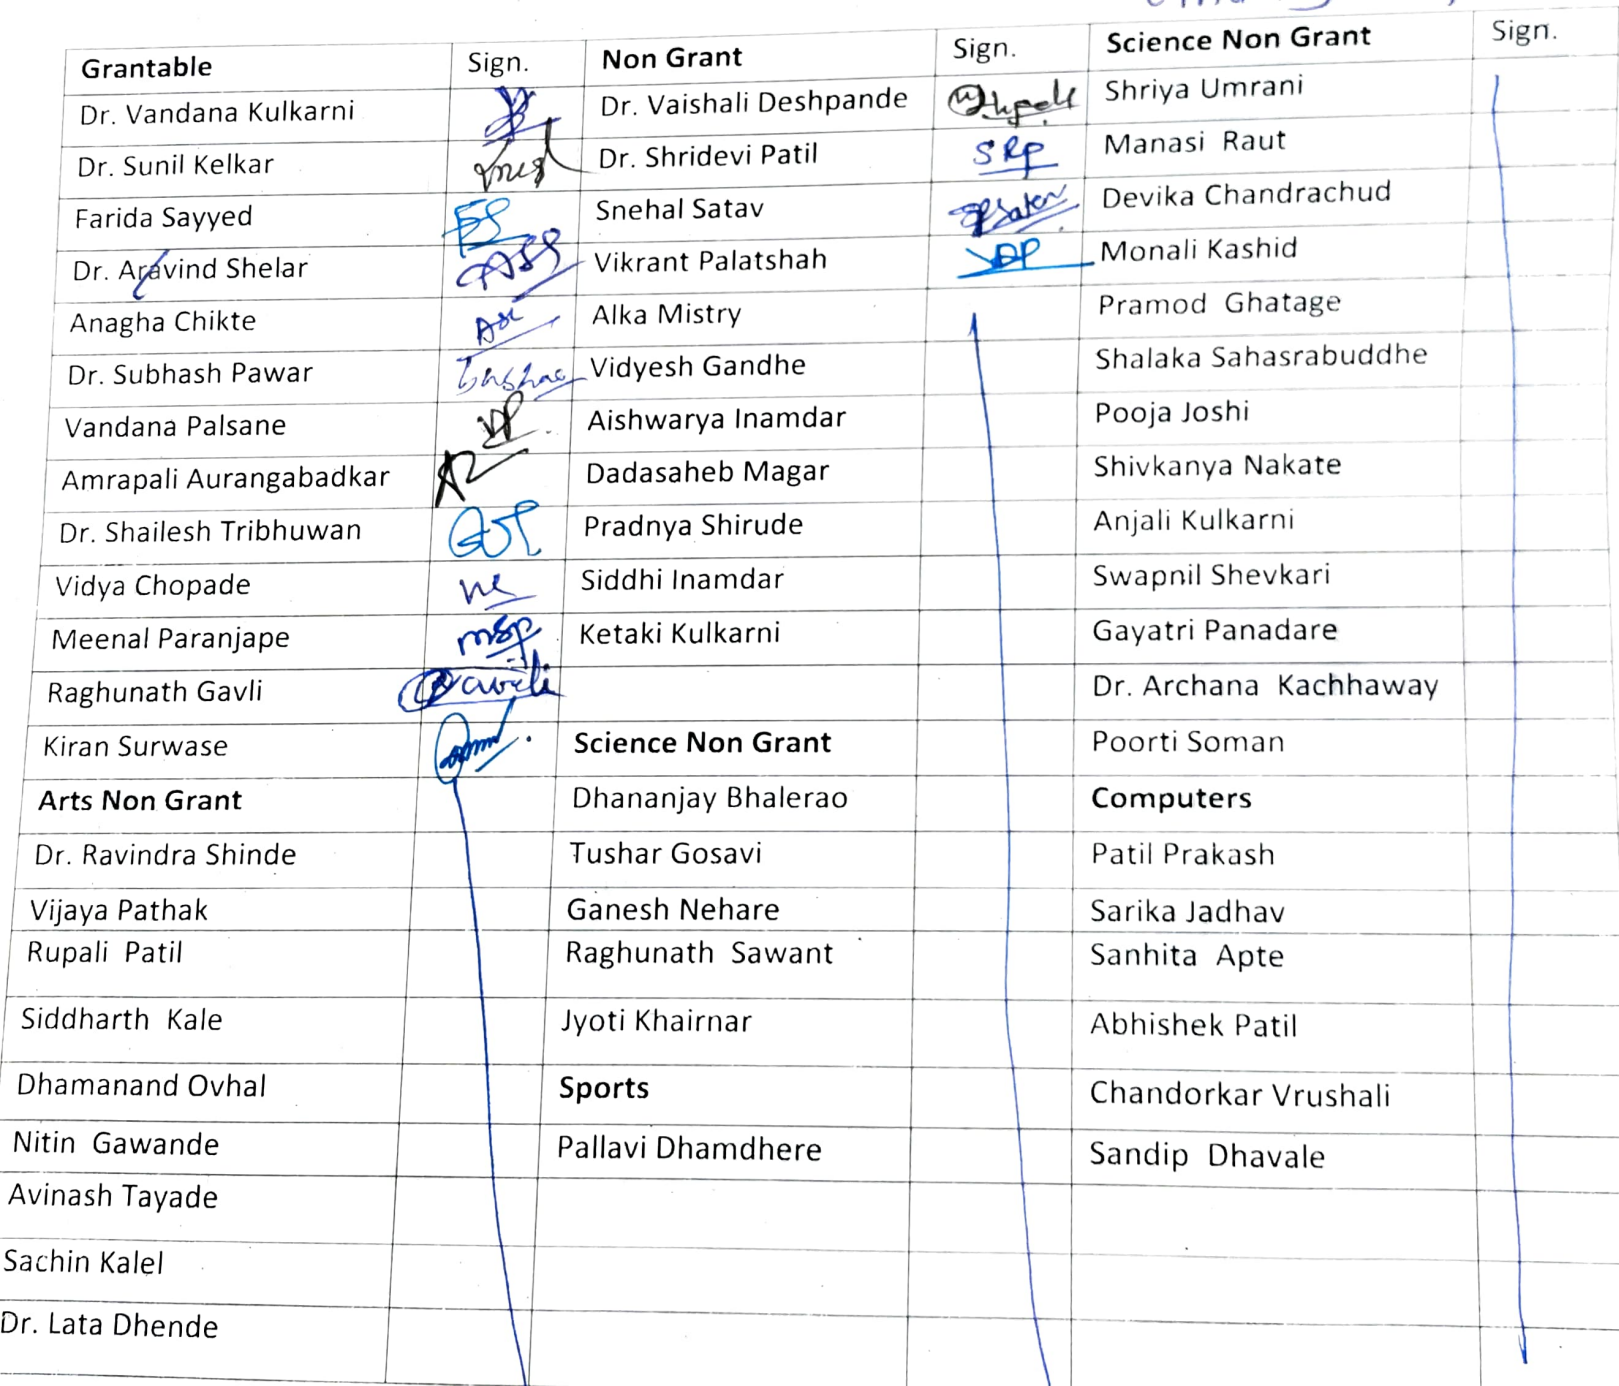 Grantable Sign. Non Grant Sign. Science Non Grant Sign.
Dr. Vandana Kulkarni Dr. Vaishali Deshpande Shriya Umrani
Dr. Sunil Kelkar Dr. Shridevi Patil SRP Manasi Raut
Farida Sayyed FS Snehal Satav Devika Chandrachud
Dr. Aravind Shelar Vikrant Palatshah VDP Monali Kashid
Anagha Chikte Alka Mistry Pramod Ghatage
Dr. Subhash Pawar Vidyesh Gandhe Shalaka Sahasrabuddhe
Vandana Palsane VP Aishwarya Inamdar Pooja Joshi
Amrapali Aurangabadkar Dadasaheb Magar Shivkanya Nakate
Dr. Shailesh Tribhuwan Pradnya Shirude Anjali Kulkarni
Vidya Chopade Siddhi Inamdar Swapnil Shevkari
Meenal Paranjape msp Ketaki Kulkarni Gayatri Panadare
Raghunath Gavli Dr. Archana Kachhaway
Kiran Surwase Science Non Grant Poorti Soman
Arts Non Grant Dhananjay Bhalerao Computers
Dr. Ravindra Shinde Tushar Gosavi Patil Prakash
Vijaya Pathak Ganesh Nehare Sarika Jadhav
Rupali Patil Raghunath Sawant Sanhita Apte
Siddharth Kale Jyoti Khairnar Abhishek Patil
Dhamanand Ovhal Sports Chandorkar Vrushali
Nitin Gawande Pallavi Dhamdhere Sandip Dhavale
Avinash Tayade
Sachin Kalel
Dr. Lata Dhende